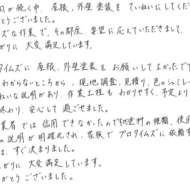 が続く中、屋根、外壁塗装を ていねいにしてくだ
とうございました。
ズな作業で、その都度、要望に応えていただきまして、
がりに 大変満足しています。
タイムズに 屋根、外壁塗装を お願いして よかったです
わからないところから、現地調査、見積り、色のシミュレ
ねいな説明があり、作業工程も わかりやすく、予定より
終わり、安心して 過ごせました。
業者では 信用できなかったでも塗料の種類、使用
の説明が明確化され、家族で プロタイムズに依頼す
は、すぐ決まりました。
がりに 大変 満足しています。
がとうございました。